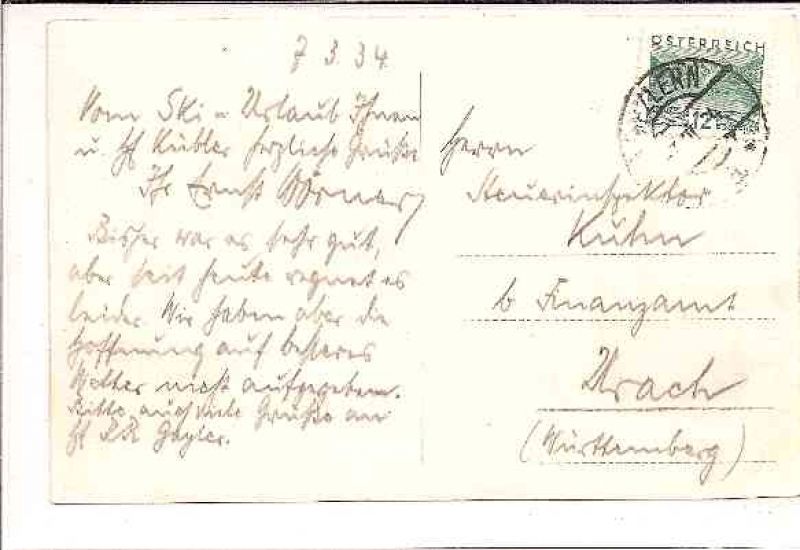 7. 3. 34.
Vom Ski-Urlaub Ihnen
u. H. Kübler herzliche Grüße
Ihr Ernst
Bisher war es sehr gut,
aber seit heute regnet es
leider. Wir haben aber die
Hoffnung auf besseres
Wetter nicht aufgegeben.
Bitte auch viele Grüße an
ÖSTERREICH
12
Herrn
Steuerinspektor
Kuhn
b. Finanzamt
Urach
(Württemberg)